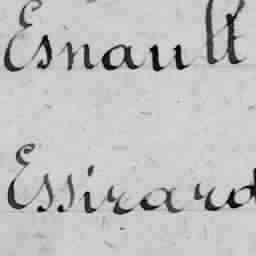 Esnault
Essirard